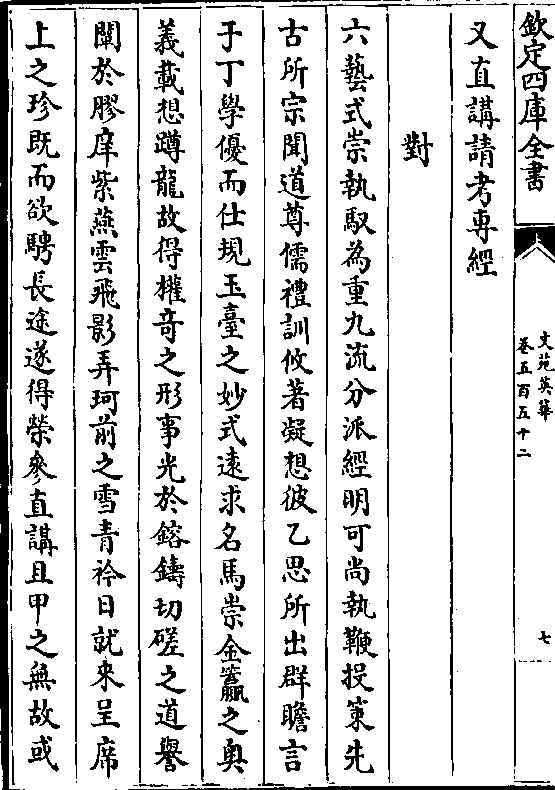 欽定四庫全書
文苑英華
卷五百五十二
七
又直講請考專經
對
六藝式崇執馭為重九流分派經明可尚執鞭投策先
古所宗聞道尊儒禮訓攸著凝想彼乙思所出群瞻言
于丁學優而仕規玉臺之妙式遠求名馬崇金籯之奥
義載想蹲龍故得權竒之形事光於鎔鑄切磋之道譽
闡於膠庠紫燕雲飛影弄珂前之雪青衿日就来呈席
上之珍既而欲騁長途遂得榮參直講且甲之無故或